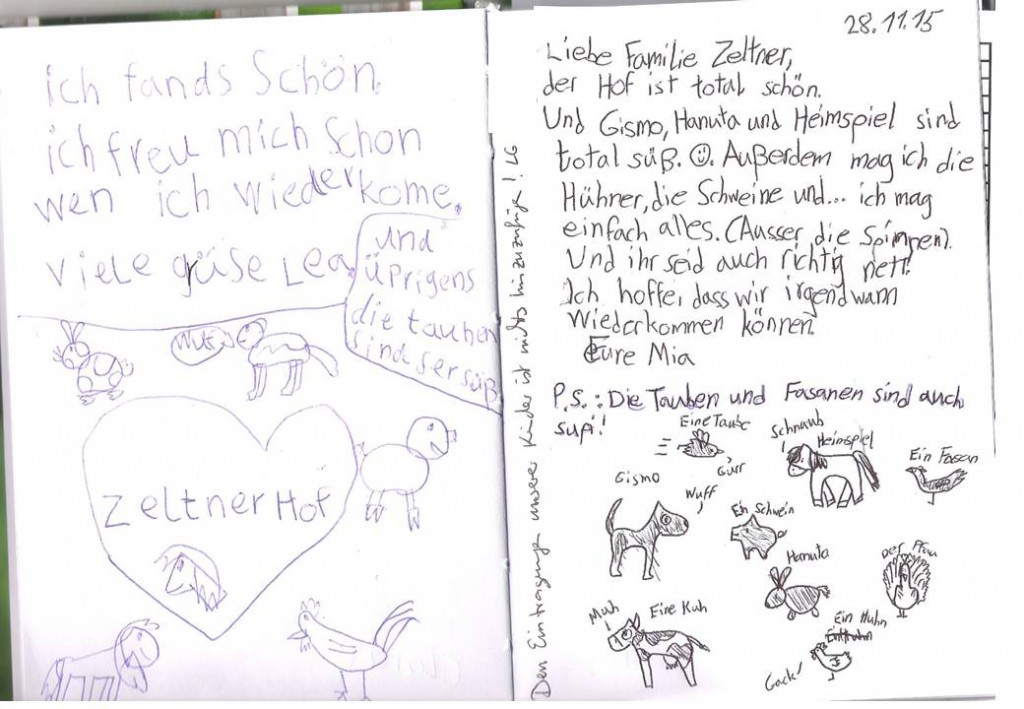 ich fands Schön.
ich freu mich Schon
wen ich wiederkome.
viele grüse Lea
und
üprigens
die tauben
sind ser süß
Wuf
Zeltner Hof
Den Eintragungen unserer Kinder ist nichts hinzuzufügen! LG
28.11.15
Liebe Familie Zeltner,
der Hof ist total schön.
Und Gismo, Hanuta und Heimspiel sind
total süß. ☺. Außerdem mag ich die
Hühner, die Schweine und... ich mag
einfach alles. (Ausser die Spinnen).
Und ihr seid auch richtig nett!
Ich hoffe, dass wir irgendwann
wiederkommen können.
Eure Mia
P.S.: Die Tauben und Fasanen sind auch
supi!
Eine Taube
Gurr
Schnaub
Heimspiel
Ein Fasan
Gismo
Wuff
Ein Schwein
Hanuta
Der Pfau
Muh
Eine Kuh
Ein Huhn
Gack!